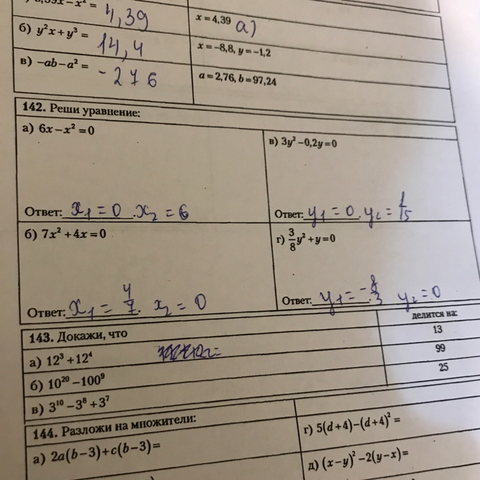 4,39
x = 4,39 а)
б) y²x + y³ = 14,4
x = -8,8, y = -1,2
в) -ab - a² = -276
a = 2,76, b = 97,24
142. Реши уравнение:
а) 6x - x² = 0
Ответ: x₁ = 0 . x₂ = 6
в) 3y² - 0,2y = 0
Ответ: y₁ = 0 . y₂ = 1/15
б) 7x² + 4x = 0
Ответ: x₁ = 4/7 . x₂ = 0
г) 3/8 y² + y = 0
Ответ: y₁ = -8/3 y₂ = 0
143. Докажи, что
делится на:
а) 12³ + 12⁴
13
б) 10²⁰ - 100⁹
99
в) 3¹⁰ - 3⁸ + 3⁷
25
144. Разложи на множители:
а) 2a(b - 3) + c(b - 3) =
г) 5(d + 4) - (d + 4)² =
д) (x - y)² - 2(y - x) =